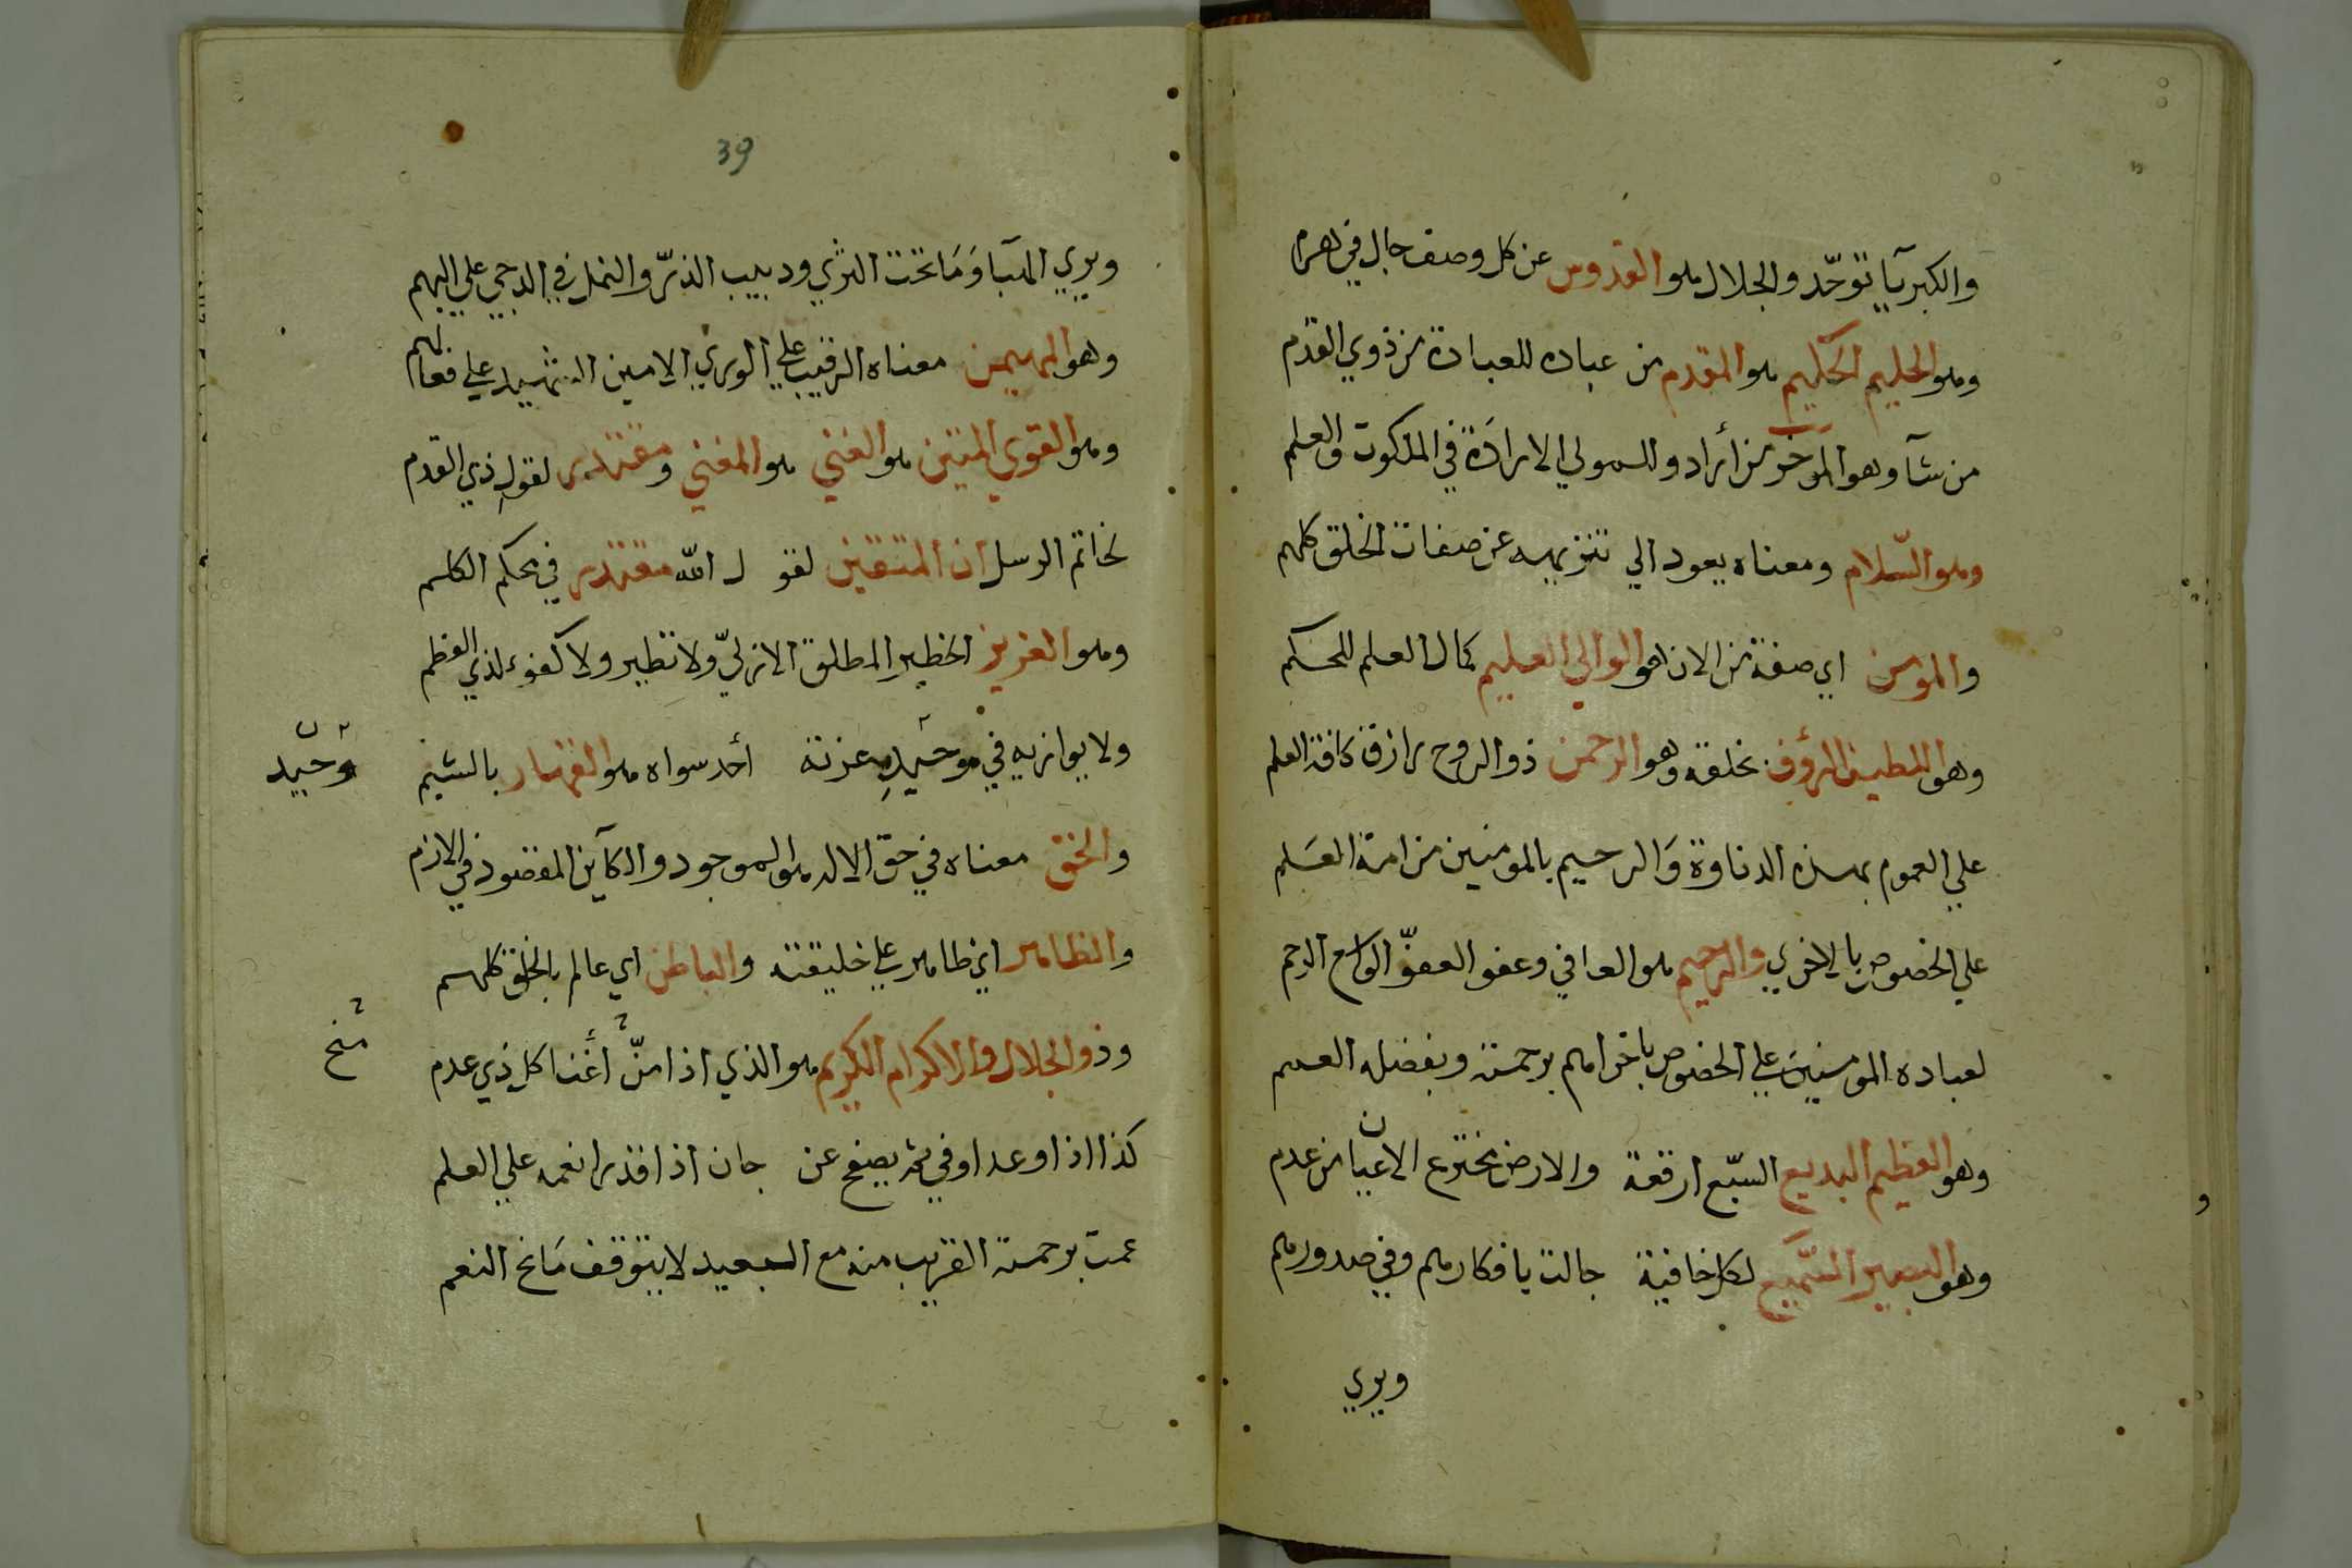 والكبريآ توحّد والجلال هو القدوس عن كل وصف جال في
وهو الحليم الحكيم هو المقدم من عباده للعبادة من ذوي القدم
من شآ وهو المؤخر من أراد وللمولي الارادة في الملكوت والعلم
وهو السّلام ومعناه يعود الي تنزيهه عن صفات الخلق كلهم
والمومن اي صفة من الان هو الوالي العليم كمال العلم للحكم
وهو اللطيف الرؤف بخلقه وهو الرحمن ذو الروح رازق كافة العلم
علي العموم بهذه الدناوة وَالرحيم بالمومنين من امة العَلم
علي الخصوص بالاخري والرحيم هو العافي وعفو العفوّ الواسع الرحم
لعباده المومنين علي الخصوص باخراهم برحمته وبفضله العمم
وهو العظيم البديع السبّع ارقعة والارض مخترع الاعيان من عدم
وهو البصير السّميع لكل خافية جالت بافكارهم وفي صدورهم
ويري
39
ويري المبا وَمَا تحت الثري ودبيب الذرّ والنمل في الدجي علي البهم
وهو المهيمن معناه الرقيب علي الوري الامين الشهيد علي فعالهم
وهو القوي المتين هو الغني هو المغني ومقتدر لقول ذي القدم
لخاتم الرسل ان المتقين لقو ل الله مقتدر في محكم الكلم
وهو العزيز الخطير المطلق الازليّ ولا نظير ولا كفوء لذي العظم
ولا يوازيه في موحيد عزته أحد سواه هو القهار بالشيم
وَحيّد
والحق معناه في حق الاله هو الموجود والكآين المقصود في الازم
والظاهر اي ظاهر علي خليقته والباطن اي عالم بالخلق كلهم
وذو الجلال والاكرام الكريم هو الذي اذا منّ أغنا كل ذي عدم
منح
كذا اذا وعد اوفي ثم يصفح عن جان اذا قدرا نعمه علي العلم
عمت برحمته القريب منه مع البعيد لا يتوقف مَانح النعم